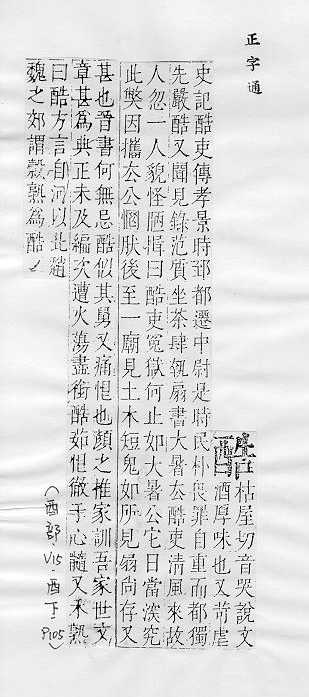 正字通
酷
枯屋切音哭說文
酒厚味也又苛虐
史記酷吏傳孝景時郅都遷中尉是時民朴畏罪自重而都獨
先嚴酷又聞見錄范質坐茶肆執扇書大暑去酷吏清風來故
人忽一人貌怪陋揖曰酷吏冤獄何止如大暑公它日當深究
此獘因攜去公惘肰後至一廟見土木短鬼如所見扇尚存又
甚也晉書何無忌酷似其舅又痛怛也顏之推家訓吾家世文
章甚爲典正未及編次遭火蕩盡銜酷茹恨徹于心髓又禾熟
曰酷方言自河以北趙
魏之郊謂穀熟爲酷
(酉部 V15.酉下 P105)